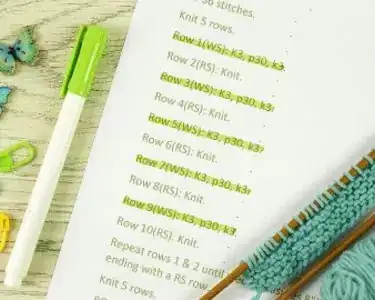 36 stitches.
Knit 5 rows.
Row 1(WS): K3, p30, k3.
Row 2(RS): Knit.
Row 3(WS): K3, p30, k3.
Row 4(RS): Knit.
Row 5(WS): K3, p30, k3.
Row 6(RS): Knit.
Row 7(WS): K3, p30, k3.
Row 8(RS): Knit.
Row 9(WS): K3, p30, k3.
Row 10(RS). Knit.
Repeat rows 1 & 2 until
ending with a RS row
Knit 5 rows.